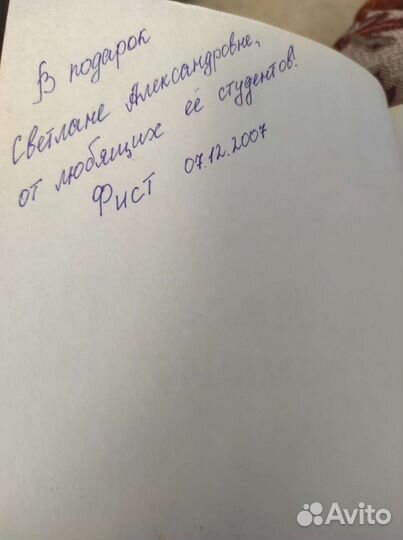 В подарок
Светлане Александровне,
от любящих её студентов!
Фист 07.12.2007
Avito